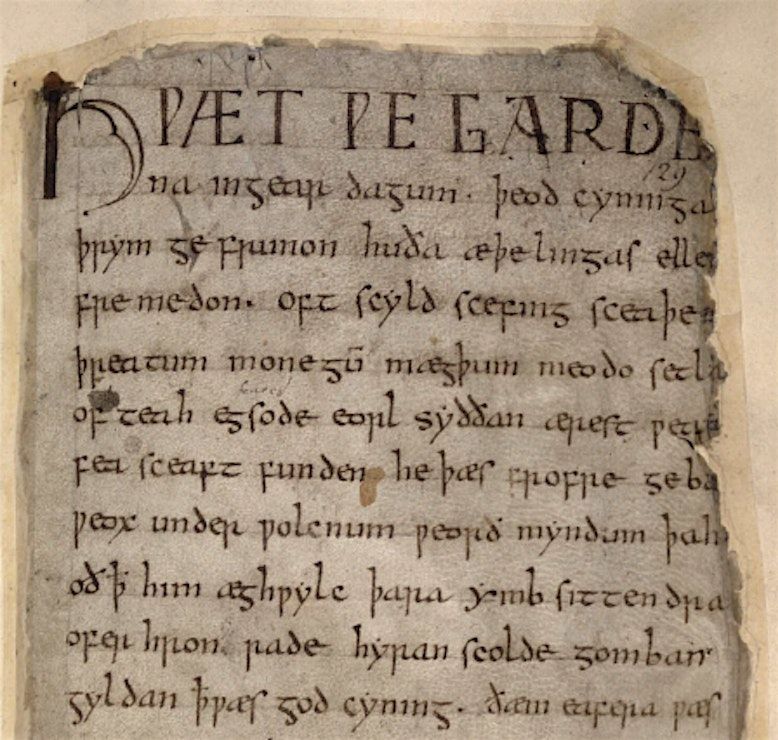 HǷÆT ǷE GARDE
129
na ingear dagum · þeod cyninga
þrym ge frunon huða æþelingas elle
fremedon · oft scyld scefing sceaþe
þreatum monegū mægþum meodo setla
of teah egsode eorl syððan ærest ƿear
fea sceaft funden he þæs frofre geba
ƿeox under ƿolcnum ƿeorð myndum þah
oð ꝥ him æghƿylc þara ymb sittendra
ofer hron rade hyran scolde gomban
gyldan ꝥ ƿæs god cyning · ðæm eafera ƿæs